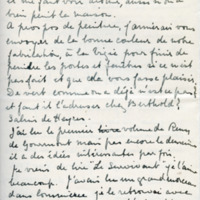 et me font voir assez, aussi on a
bien peint la maison.
A propos de peintre, j'aimerais vous
envoyer de la bonne couleur de notre
fabrication, à la pour finir de
peindre les portes et fenêtres si ce n'est
pas fait et que cela vous fasse plaisir
De vert comme on a déjà n'est-ce pas?
et faut il l'adresser chez Berthold?
Salins de Hayres.
J'ai lu le premier volume de Remy
de Gourmont mais pas encore le dernier
il a des idées intéressantes par fois
Je viens de lire le j'aime
beaucoup. J'avais lu un grand morceau
dans je le retrouve avec